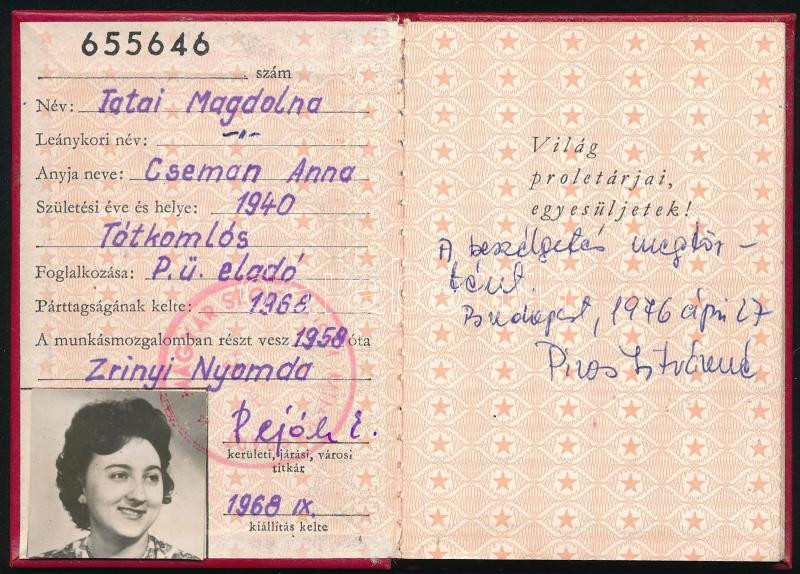 655646
szám
Név: Tatai Magdolna
Leánykori név: -〃-
Anyja neve: Cseman Anna
Születési éve és helye: 1940
Tótkomlós
Foglalkozása: P.ü. eladó
Párttagságának kelte: 1968
A munkásmozgalomban részt vesz 1958 óta
Zrinyi Nyomda
kerületi, járási, városi
titkár
1968 IX.
kiállítás kelte
Világ
proletárjai,
egyesüljetek!
A beszélgetés megtör-
tént.
Budapest, 1976 ápr 27
Piros Istvánné